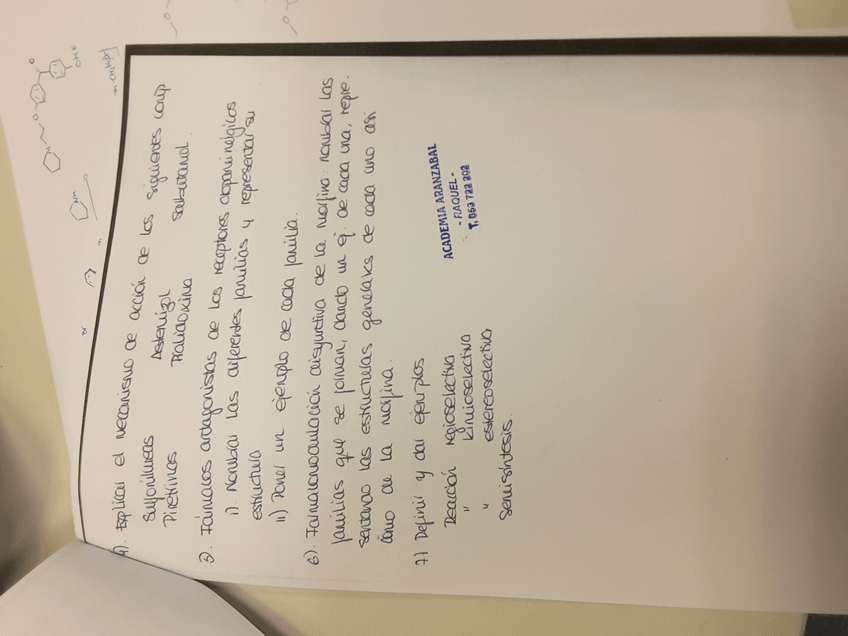 4). Explicar el mecanismo de acción de los siguientes comp
Sulfonilureas Astemizol Salbutamol.
Piretrinas Pralidoxina
5. Fármacos antagonistas de los receptores dopaminérgicos
i). Nombrar las diferentes familias y representar su
estructura
ii) Poner un ejemplo de cada familia.
6). Farmacomodulación disyuntiva de la morfina: nombrar las
familias que se forman, dando un ej. de cada una, repre-
sentando las estructuras generales de cada uno así
como de la morfina.
7) Definir y dar ejemplos
Reacción regioselectiva
" kimioselectiva
" estereoselectiva
Semisíntesis.
ACADEMIA ARANZABAL
- RAQUEL -